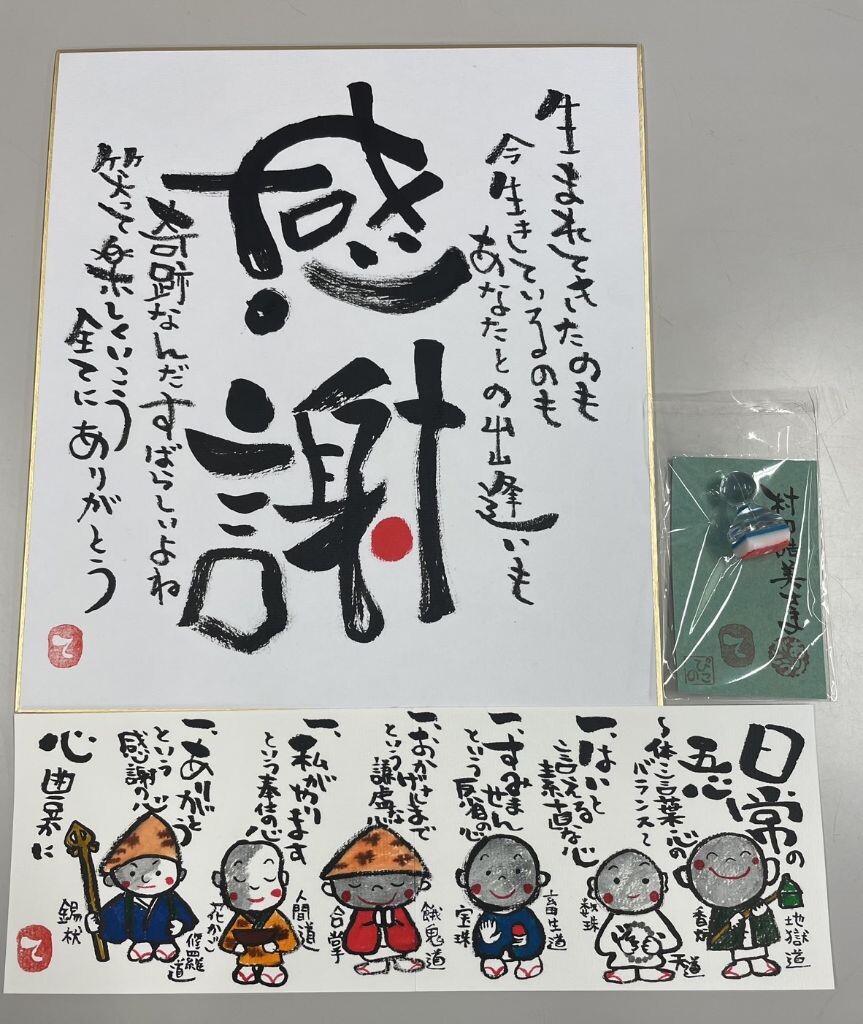 生まれてきたのも
今生きているのも
あなたとの出逢いも
感謝
奇跡なんだすばらしいよね
笑って楽しくいこう
全てにありがとう
日常の
五心
〜体・言葉・心の
バランス〜
一、はいと
言える
素直な心
一、すみません
という反省の心
一、おかげさまで
という
謙虚な心
一、私がやります
という奉仕の心
一、ありがとう
という
感謝の心
心豊に
地獄道
香炉
天道
数珠
畜生道
宝珠
餓鬼道
合掌
人間道
花かご
修羅道
錫杖